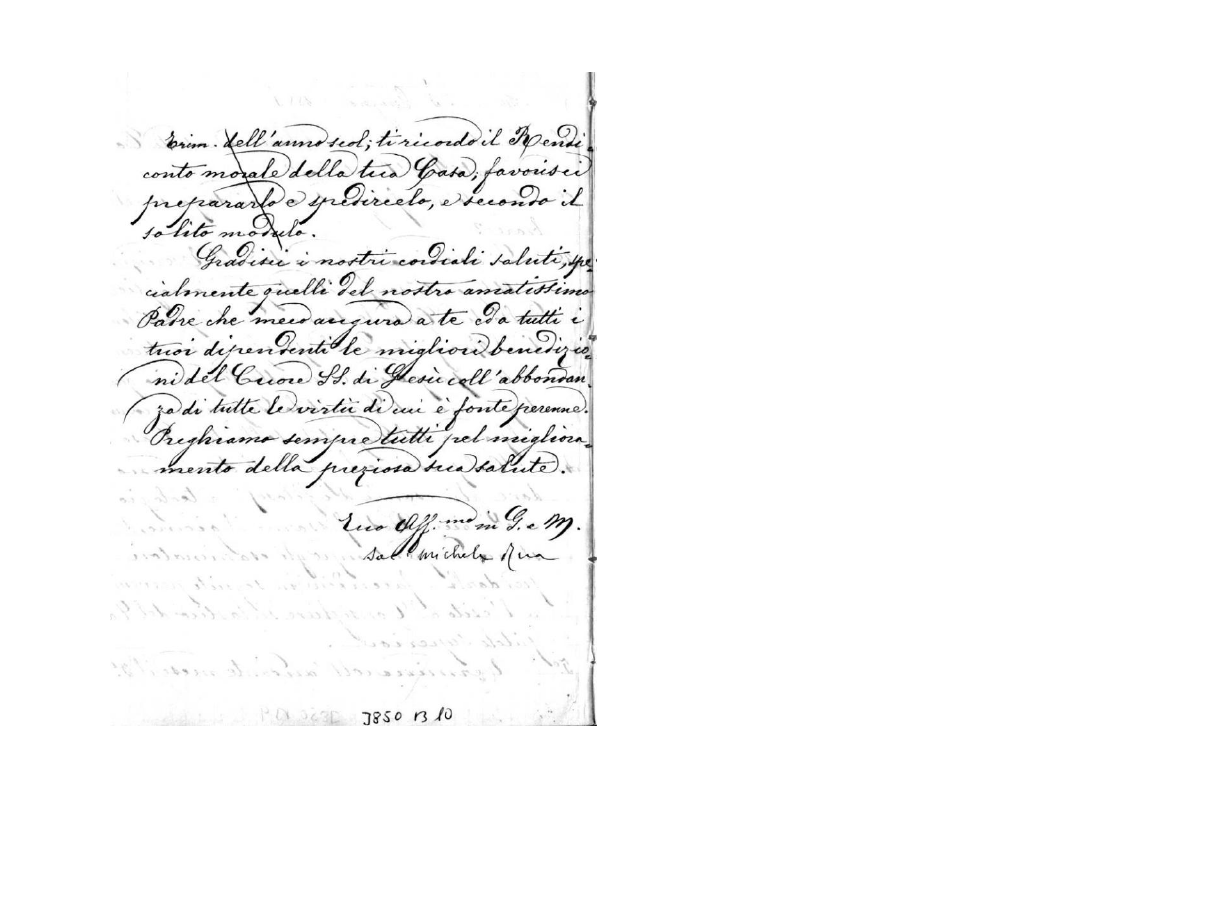 Trim. dell'anno scol; ti ricordo il Rendi
conto morale della tua Casa; favorisci
prepararlo e spedircelo, e secondo il
solito modulo.
Gradisci i nostri cordiali saluti, spe-
cialmente quelli del nostro amatissimo
Padre che meco augura a te ed a tutti i
tuoi dipendenti le migliori benedizio-
ni del Cuore SS. di Gesù coll'abbondan-
za di tutte le virtù di cui è fonte perenne.
Preghiamo sempre tutti pel migliora-
mento della preziosa sua salute.
Tuo Aff.mo in G. e M.
Sac. Michele Rua
3850 B 10